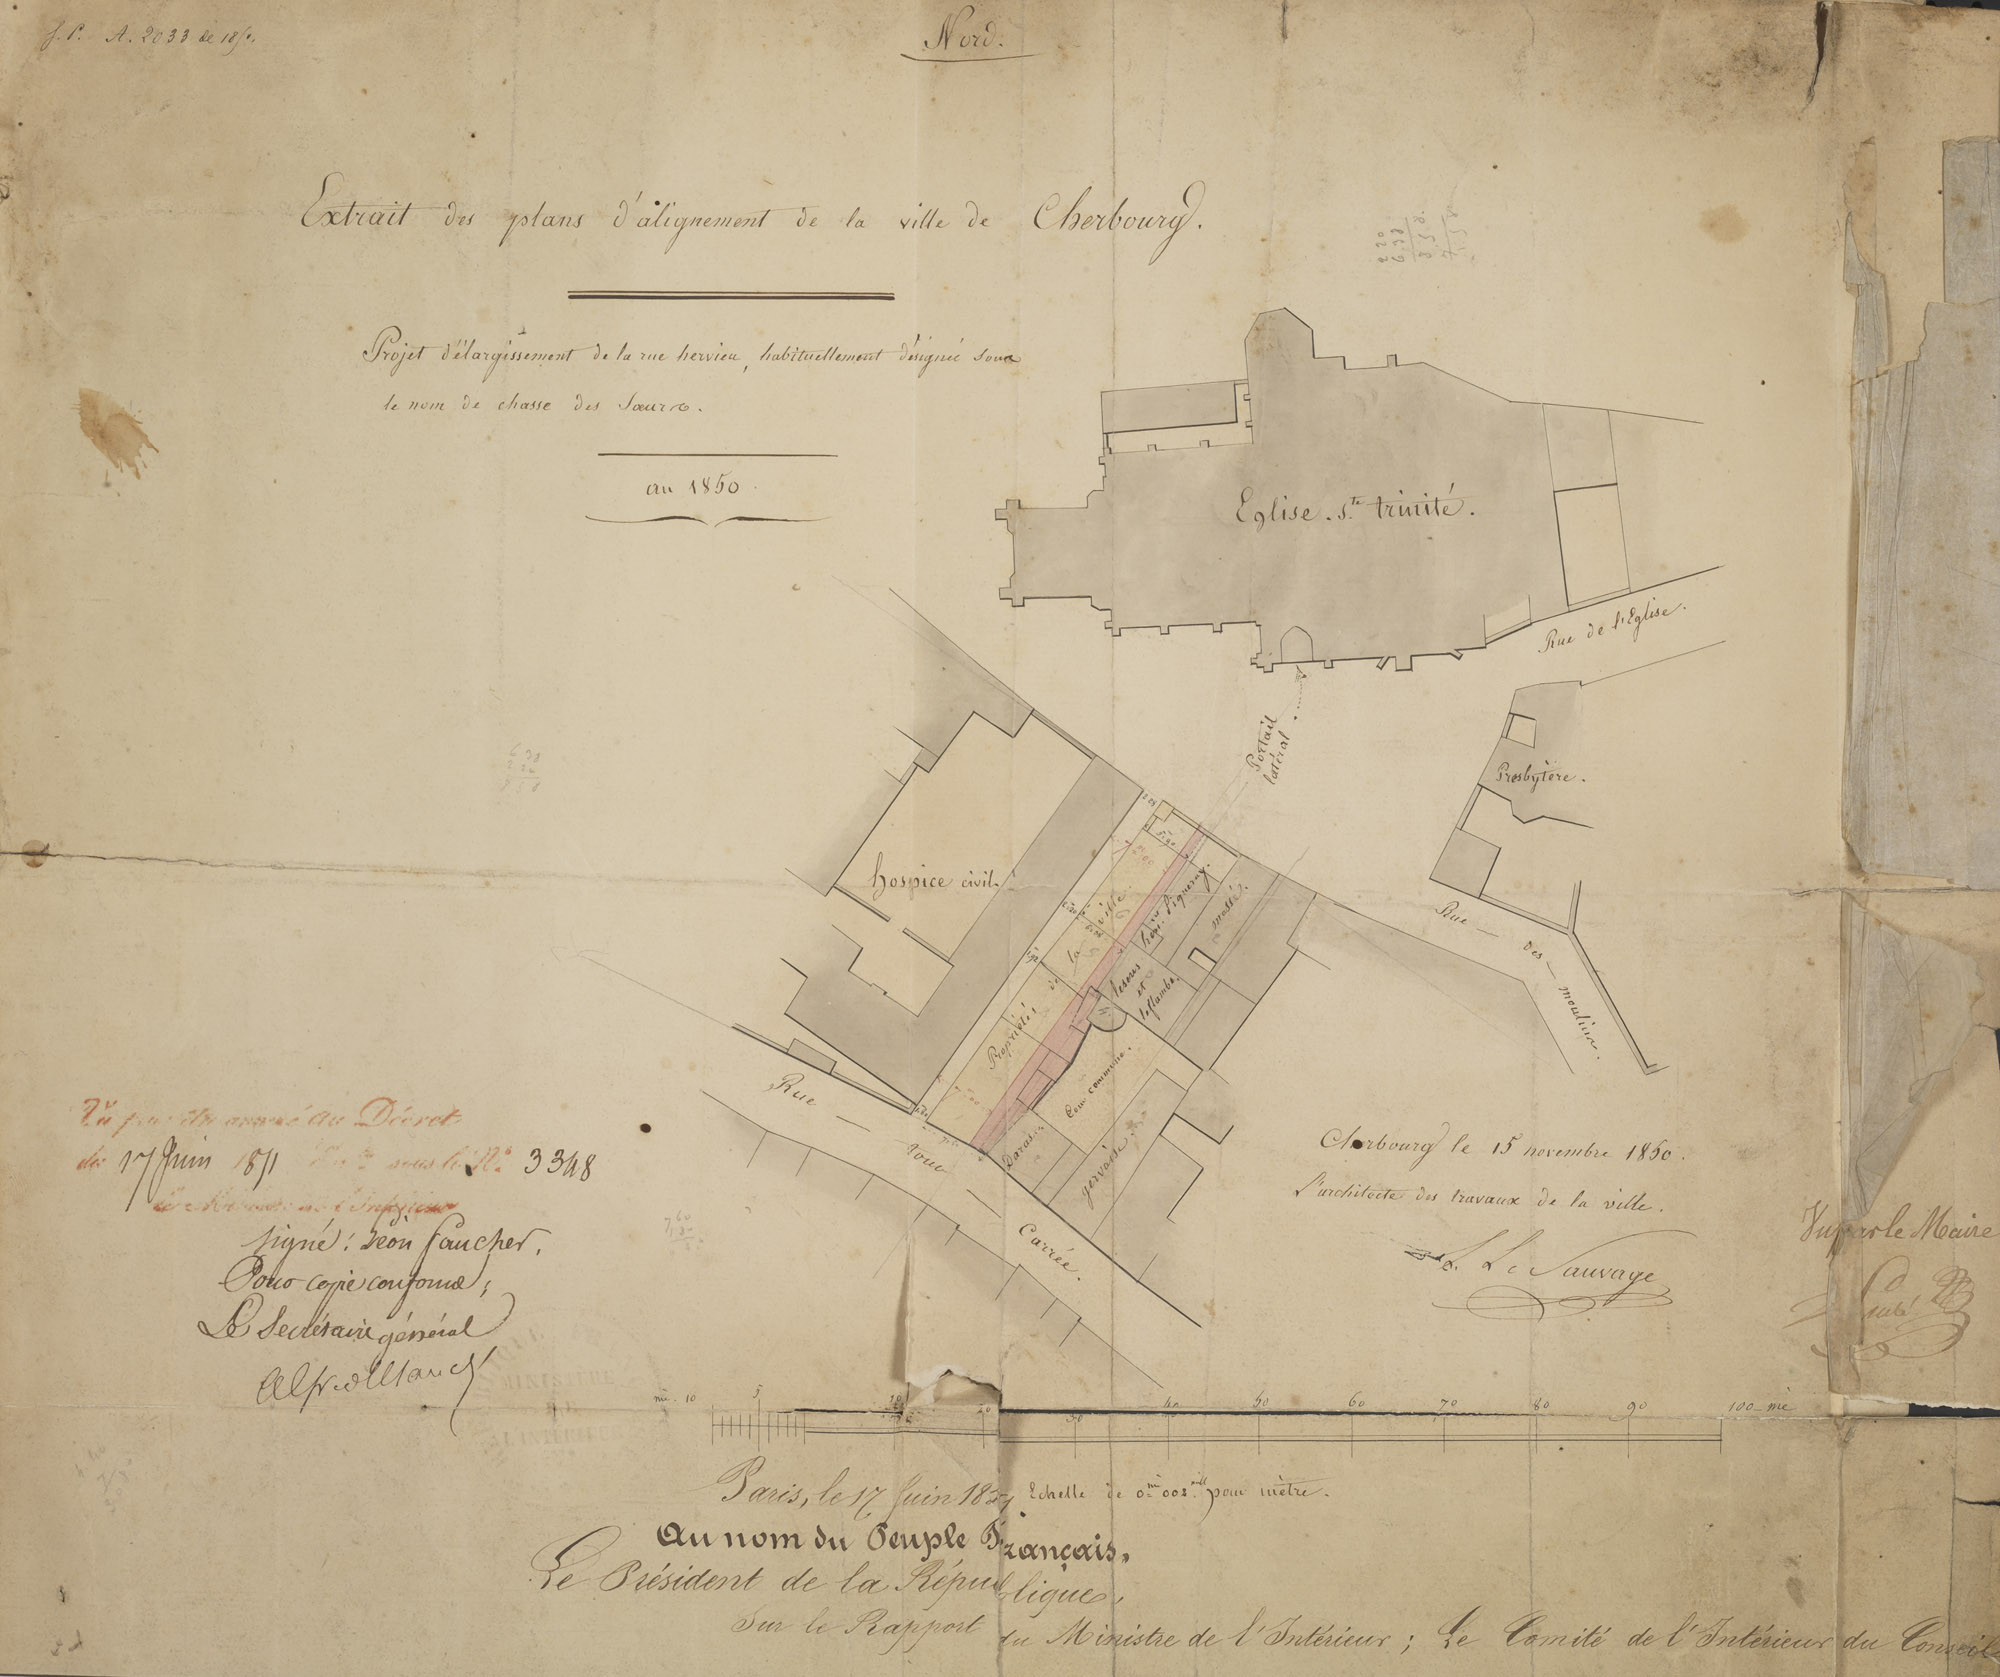 J. P. A. 2033 de 185
Nord.
Extrait des plans d'alignement de la ville de Cherbourg.
Projet d'élargissement de la rue hervieu, habituellement désignée sous
le nom de chasse des Sœurs.
an 1850
Eglise. Ste trinité.
Rue de l'Eglise.
Portail
latéral
Presbytère.
hospice civil.
Rue des moulins.
Propriété de la ville.
Piquerey.
massé.
et
leflambe.
Cour commune.
Daras.
gervaise.
Rue Tour Carrée.
Vu pour être annexé au Décret
du 17 Juin 1851 sous le No. 3348
Le Ministre de l'Intérieur
Signé: Léon Faucher.
Pour copie conforme;
Le Secrétaire général
Cherbourg le 15 novembre 1850.
L'architecte des travaux de la ville.
L. Le Sauvage
Vu par le Maire
MINISTERE
DE
L'INTERIEUR
m. 10 5 10 20 30 40 50 60 70 80 90 100 mè
Echelle de 0m 002 mill pour mètre.
Paris, le 17 Juin 1851
Au nom du Peuple Français.
Le Président de la République,
Sur le Rapport du Ministre de l'Intérieur; Le Comité de l'Intérieur du Conseil